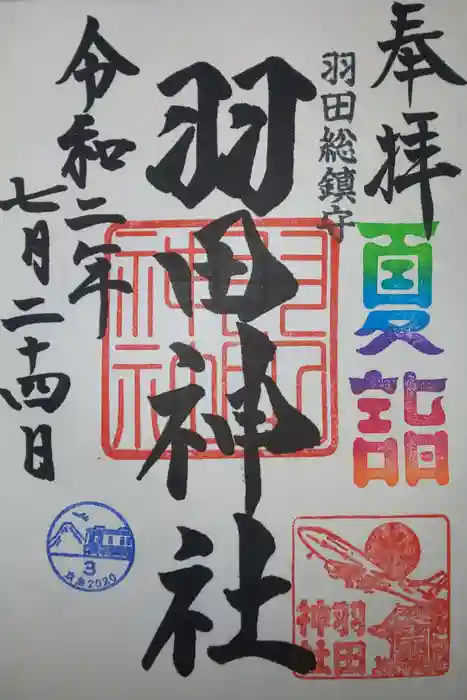 奉拝
羽田総鎮守
夏詣
羽田神社
羽田神社
令和二年
七月二十四日
羽田
神社
3
2020